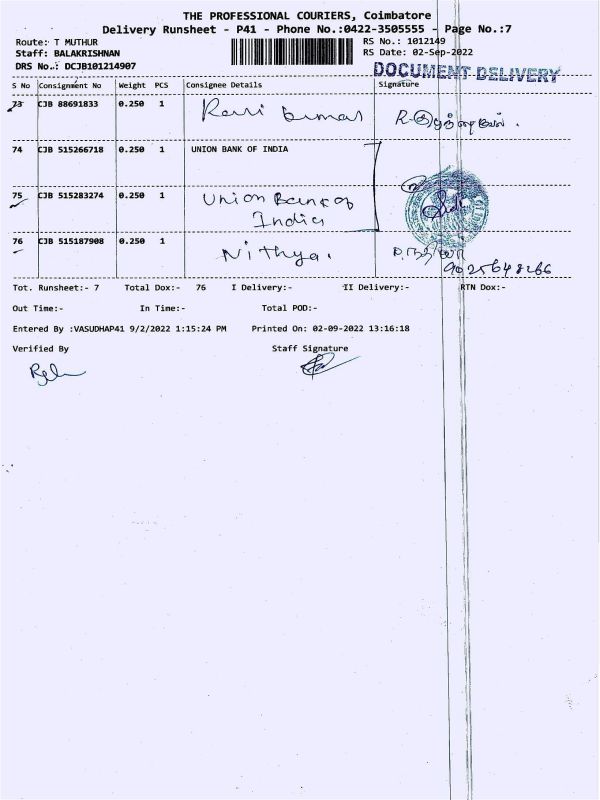 THE PROFESSIONAL COURIERS, Coimbatore
Delivery Runsheet - P41 - Phone No.:0422-3505555 - Page No.:7
Route: T MUTHUR RS No.: 1012149
Staff: BALAKRISHNAN RS Date: 02-Sep-2022
DRS No.: DCJB101214907 DOCUMENT DELIVERY
S No Consignment No Weight PCS Consignee Details Signature
73 CJB 88691833 0.250 1 Ravi kumar
74 CJB 515266718 0.250 1 UNION BANK OF INDIA
75 CJB 515283274 0.250 1 Union Bank of
India
76 CJB 515187908 0.250 1 Nithya.
Tot. Runsheet:- 7 Total Dox:- 76 I Delivery:- II Delivery:- RTN Dox:-
Out Time:- In Time:- Total POD:-
Entered By :VASUDHAP41 9/2/2022 1:15:24 PM Printed On: 02-09-2022 13:16:18
Verified By Staff Signature